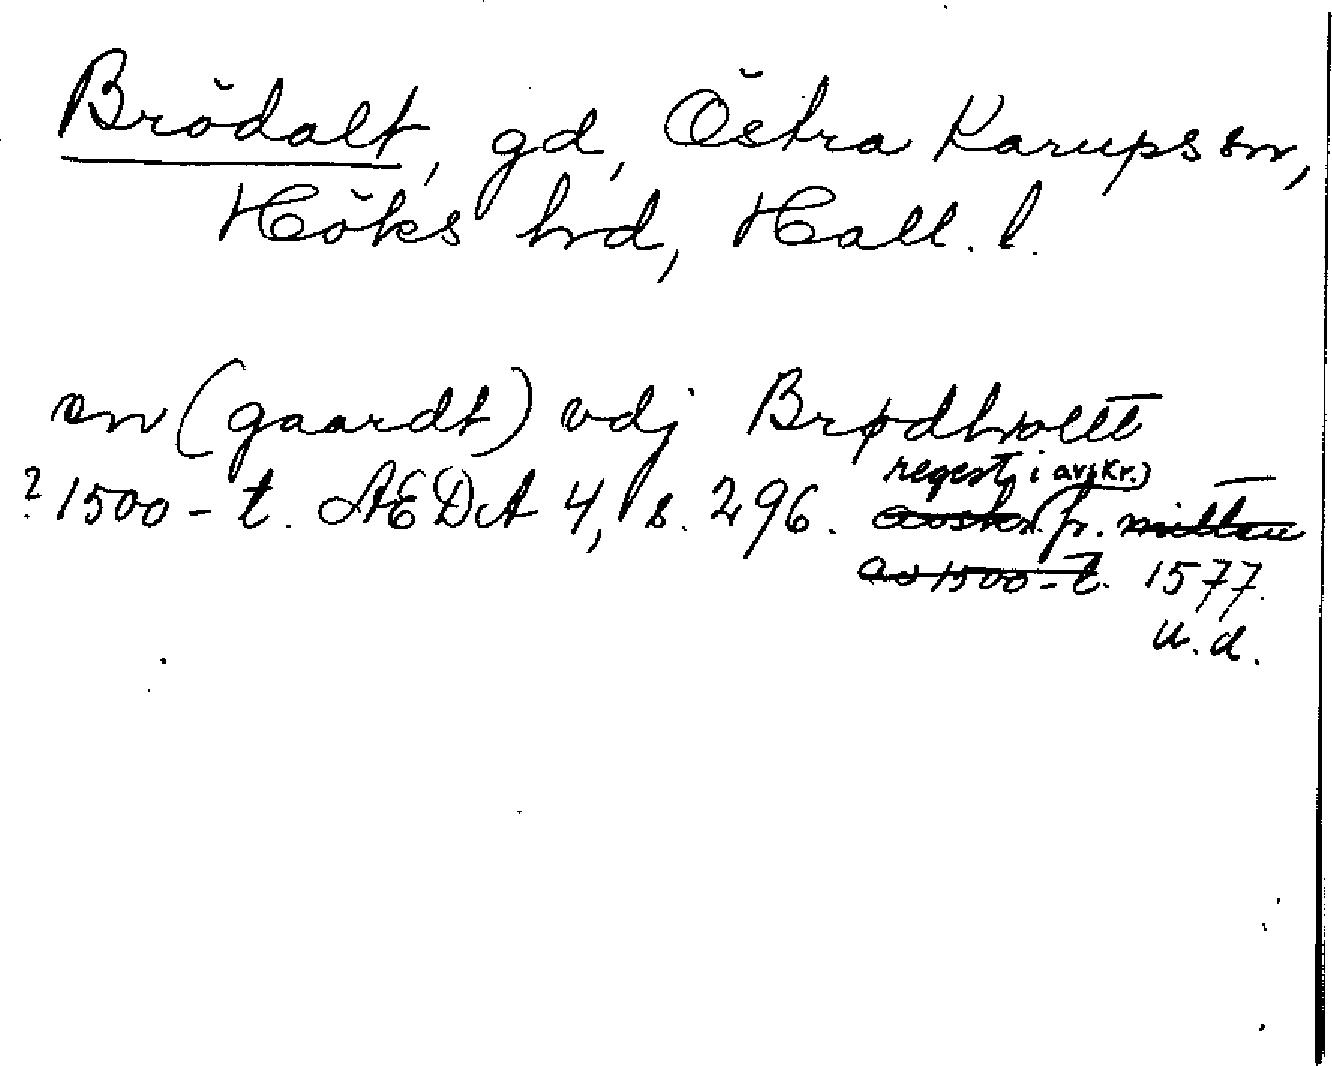 Brödalt, gd, Östra Karups sn,
Höks hrd, Hall. l.
en (gaardt) vdj Brødholtt
regest i avskr.)
? 1500-t. AEDA 4, s. 296. avskr. fr. mitten
av 1500-t. 1577.
u.d.